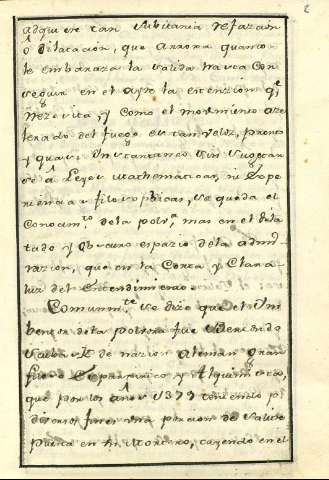 2
adquiere tan subitania refazion
o dilatacion, que arroja quanto
le embaraza la salida hasta con
seguir en el ayre la extenzion qe
nezesita, y como el movimiento aze
lerado del fuego es tan veloz, pronto
y quasi instantaneo sin sugetar
se a Leyes Mathematicas, ni espe
riencias filosophicas, se queda el
conocimto. dela polva. mas en el dila
tado y obscuro espazio dela admi
razion, que en la corta y clara
luz del entendimiento.
Comunmte. se dize que el In
bentor dela polvora fue
de nazion Aleman gran
y Alquimista,
que por los años 1379 teniendo
una porcion de salitre
puesta en un mortero, cayendo en el